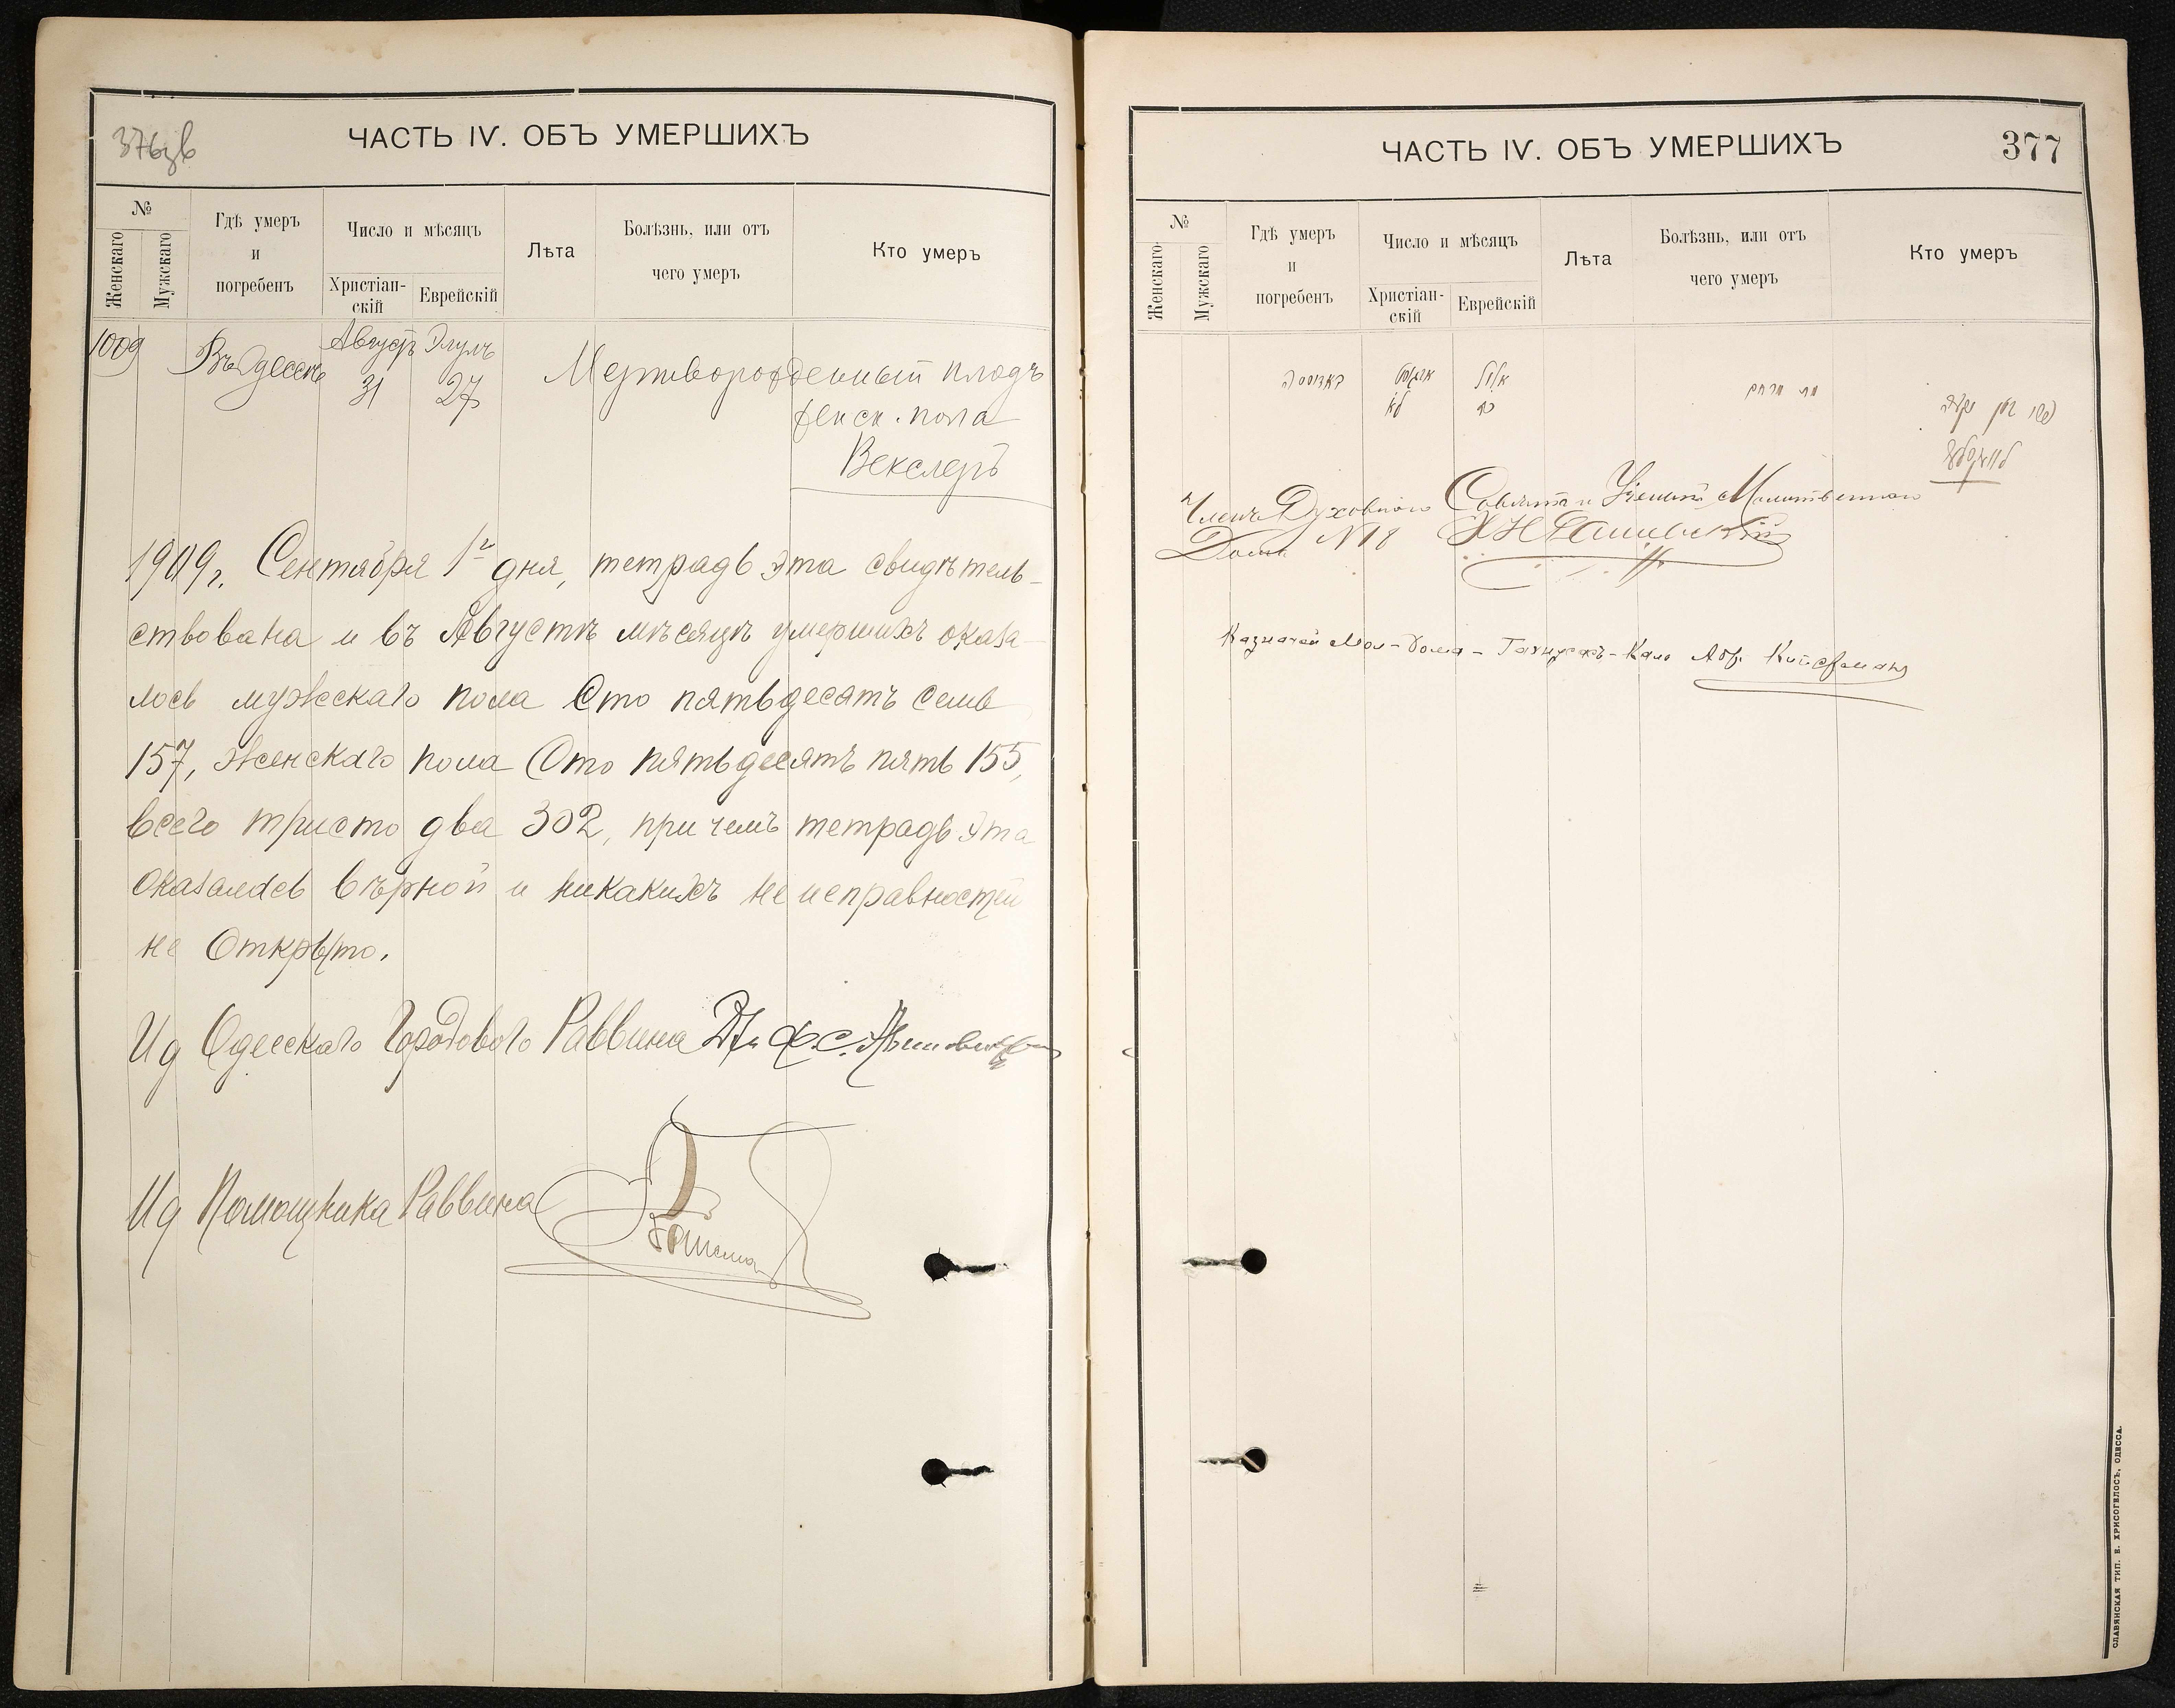 376 зв
ЧАСТЬ IV. ОБЪ УМЕРШИХЪ
№
Женскаго
Мужскаго
Гдѣ умеръ
и
погребенъ
Число и мѣсяцъ
Христіан-
скій
Еврейскій
Лѣта
Болѣзнь, или отъ
чего умеръ
Кто умеръ
1009
Въ Одессѣ
Августъ Элулъ
31 27
Мертворожденный плодъ
женск. пола
Векслеръ
1909 г. Сентября 1го дня, тетрадь эта свидѣтель-
ствована и въ Августѣ мѣсяцѣ умершихъ оказа-
лось мужескаго пола Сто пятьдесятъ семь
157, женскаго пола Сто пятьдесятъ пять 155,
всего тристо два 302, при чемъ тетрадь эта
оказалась вѣрной и никакихъ неисправностей
не открыто.
Ид Одесскаго Городового Раввина
Ид Помощника Раввина
ЧАСТЬ IV. ОБЪ УМЕРШИХЪ
377
№
Женскаго
Мужскаго
Гдѣ умеръ
и
погребенъ
Число и мѣсяцъ
Христіан-
скій
Еврейскій
Лѣта
Болѣзнь, или отъ
чего умеръ
Кто умеръ
אויגוסט אלול
Членъ Духовнаго Совѣта и Ученый Молитвеннаго
Дома N 18
Казначей Мол-дома
СЛАВЯНСКАЯ ТИП. Е. ХРИСОГЕЛОСЪ, ОДЕССА.